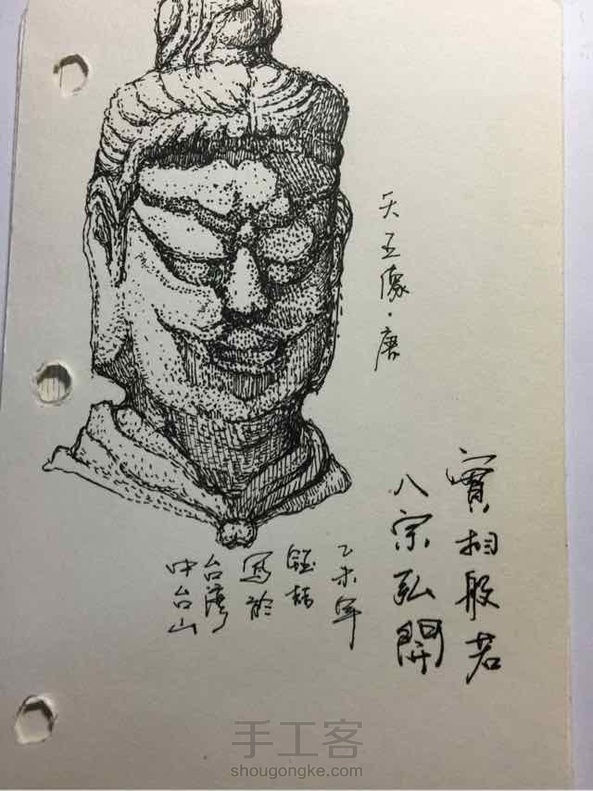 天王像·唐
實相般若
八宗弘開
乙未年
鈺喆
寫於
台灣
中台山
手工客
shougongke.com